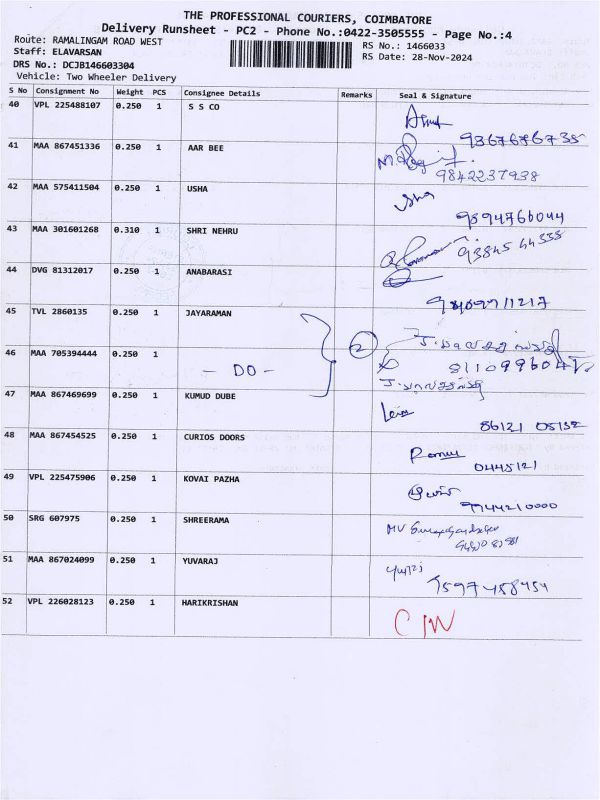 THE PROFESSIONAL COURIERS, COIMBATORE
Delivery Runsheet - PC2 - Phone No.:0422-3505555 - Page No.:4
Route: RAMALINGAM ROAD WEST
RS No.: 1466033
Staff: ELAVARSAN
RS Date: 28-Nov-2024
DRS No.: DCJB146603304
Vehicle: Two Wheeler Delivery
S No Consignment No Weight PCS Consignee Details Remarks Seal & Signature
40 VPL 225488107 0.250 1 S S CO
9367676735
41 MAA 867451336 0.250 1 AAR BEE
9842237938
42 MAA 575411504 0.250 1 USHA
9894766044
43 MAA 301601268 0.310 1 SHRI NEHRU
93845 44335
44 DVG 81312017 0.250 1 ANABARASI
45 TVL 2860135 0.250 1 JAYARAMAN
2
46 MAA 705394444 0.250 1 - DO -
47 MAA 867469699 0.250 1 KUMUD DUBE
86121 05132
48 MAA 867454525 0.250 1 CURIOS DOORS
0445121
49 VPL 225475906 0.250 1 KOVAI PAZHA
9944210000
50 SRG 607975 0.250 1 SHREERAMA
51 MAA 867024099 0.250 1 YUVARAJ
7597458454
52 VPL 226028123 0.250 1 HARIKRISHAN